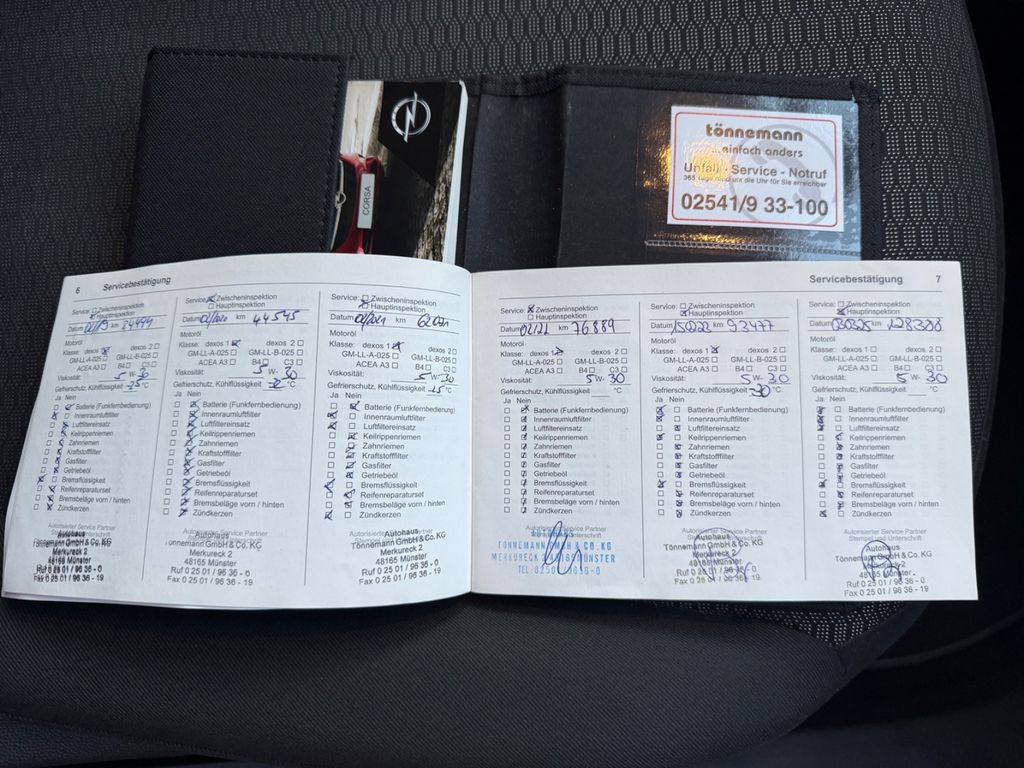 CORSA
tönnemann
...einfach anders
Unfall - Service - Notruf
365 Tage rund um die Uhr für Sie erreichbar
02541/9 33-100
6 Servicebestätigung
Service: Zwischeninspektion
Hauptinspektion
Datum km
Motoröl
Klasse: dexos 1 dexos 2
GM-LL-A-025 GM-LL-B-025
ACEA A3 B4 C3
Viskosität: 5 W-30
Gefrierschutz, Kühlflüssigkeit -25 °C
Ja Nein
Batterie (Funkfernbedienung)
Innenraumluftfilter
Luftfiltereinsatz
Keilrippenriemen
Zahnriemen
Kraftstofffilter
Gasfilter
Getriebeöl
Bremsflüssigkeit
Reifenreparaturset
Bremsbeläge vorn / hinten
Zündkerzen
Autorisierter Service Partner
Autohaus
Tönnemann GmbH & Co. KG
Merkureck 2
48165 Münster
Ruf 0 25 01 / 96 36 - 0
Fax 0 25 01 / 96 36 - 19
Service: Zwischeninspektion
Hauptinspektion
Datum 01/2020 km 44545
Motoröl
Klasse: dexos 1 dexos 2
GM-LL-A-025 GM-LL-B-025
ACEA A3 B4 C3
Viskosität: 5 W-30
Gefrierschutz, Kühlflüssigkeit °C
Ja Nein
Batterie (Funkfernbedienung)
Innenraumluftfilter
Luftfiltereinsatz
Keilrippenriemen
Zahnriemen
Kraftstofffilter
Gasfilter
Getriebeöl
Bremsflüssigkeit
Reifenreparaturset
Bremsbeläge vorn / hinten
Zündkerzen
Autorisierter Service Partner
Autohaus
Tönnemann GmbH & Co. KG
Merkureck 2
48165 Münster
Ruf 0 25 01 / 96 36 - 0
Fax 0 25 01 / 96 36 - 19
Service: Zwischeninspektion
Hauptinspektion
Datum 01/2021 km
Motoröl
Klasse: dexos 1 dexos 2
GM-LL-A-025 GM-LL-B-025
ACEA A3 B4 C3
Viskosität: 5 W-30
Gefrierschutz, Kühlflüssigkeit -25 °C
Ja Nein
Batterie (Funkfernbedienung)
Innenraumluftfilter
Luftfiltereinsatz
Keilrippenriemen
Zahnriemen
Kraftstofffilter
Gasfilter
Getriebeöl
Bremsflüssigkeit
Reifenreparaturset
Bremsbeläge vorn / hinten
Zündkerzen
Autorisierter Service Partner
Autohaus
Tönnemann GmbH & Co. KG
Merkureck 2
48165 Münster
Ruf 0 25 01 / 96 36 - 0
Fax 0 25 01 / 96 36 - 19
Servicebestätigung 7
Service: Zwischeninspektion
Hauptinspektion
Datum 02/22 km 76889
Motoröl
Klasse: dexos 1 dexos 2
GM-LL-A-025 GM-LL-B-025
ACEA A3 B4 C3
Viskosität: 5 W-30
Gefrierschutz, Kühlflüssigkeit °C
Ja Nein
Batterie (Funkfernbedienung)
Innenraumluftfilter
Luftfiltereinsatz
Keilrippenriemen
Zahnriemen
Kraftstofffilter
Gasfilter
Getriebeöl
Bremsflüssigkeit
Reifenreparaturset
Bremsbeläge vorn / hinten
Zündkerzen
Autorisierter Service Partner
TÖNNEMANN GMBH & CO.KG
MERKURECK 2 48165 MÜNSTER
Service: Zwischeninspektion
Hauptinspektion
Datum km 93477
Motoröl
Klasse: dexos 1 dexos 2
GM-LL-A-025 GM-LL-B-025
ACEA A3 B4 C3
Viskosität: 5 W-30
Gefrierschutz, Kühlflüssigkeit -30 °C
Ja Nein
Batterie (Funkfernbedienung)
Innenraumluftfilter
Luftfiltereinsatz
Keilrippenriemen
Zahnriemen
Kraftstofffilter
Gasfilter
Getriebeöl
Bremsflüssigkeit
Reifenreparaturset
Bremsbeläge vorn / hinten
Zündkerzen
Autorisierter Service Partner
Autohaus
Tönnemann GmbH & Co. KG
Merkureck 2
48165 Münster
Ruf 0 25 01 / 96 36 - 0
Fax 0 25 01 / 96 36 - 19
Service: Zwischeninspektion
Hauptinspektion
Datum km
Motoröl
Klasse: dexos 1 dexos 2
GM-LL-A-025 GM-LL-B-025
ACEA A3 B4 C3
Viskosität: 5 W-30
Gefrierschutz, Kühlflüssigkeit °C
Ja Nein
Batterie (Funkfernbedienung)
Innenraumluftfilter
Luftfiltereinsatz
Keilrippenriemen
Zahnriemen
Kraftstofffilter
Gasfilter
Getriebeöl
Bremsflüssigkeit
Reifenreparaturset
Bremsbeläge vorn / hinten
Zündkerzen
Autorisierter Service Partner
Stempel und Unterschrift
Autohaus
Tönnemann GmbH & Co. KG
Merkureck 2
48165 Münster
Ruf 0 25 01 / 96 36 - 0
Fax 0 25 01 / 96 36 - 19